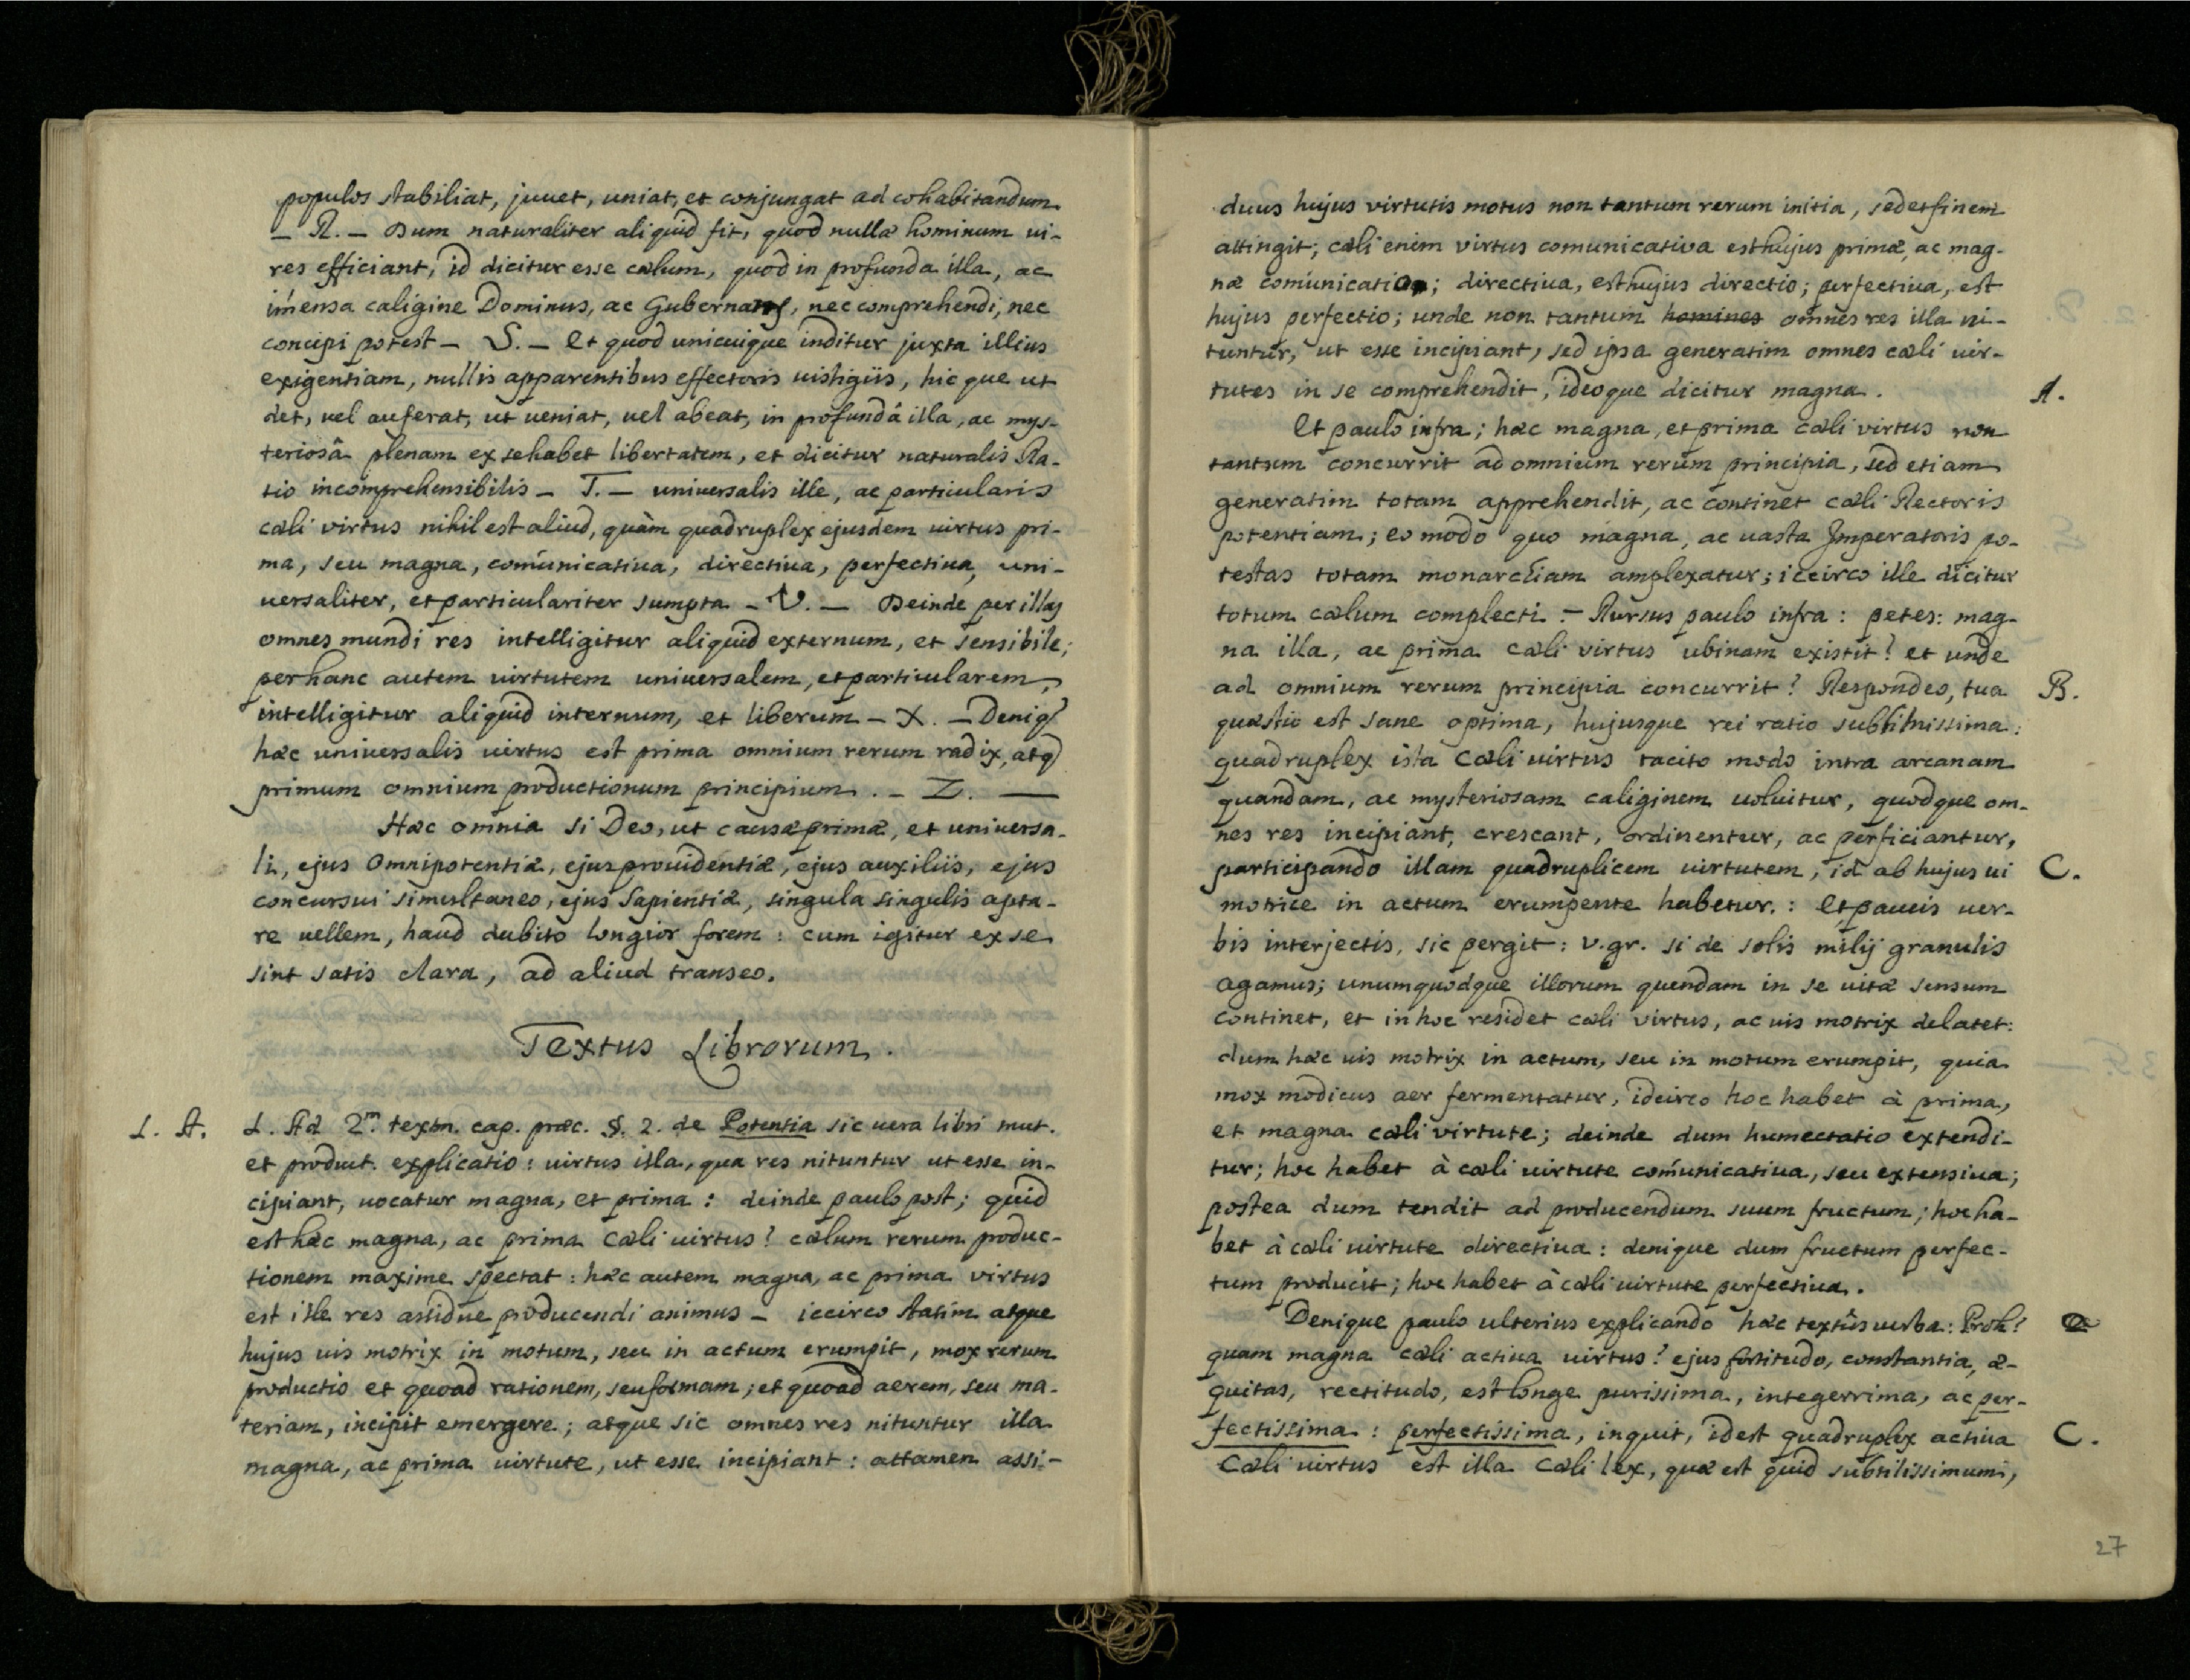 populos stabiliat, juvet, uniat, et conjungat ad cohabitandum
_ R. _ Dum naturaliter aliquid fit, quod nullæ hominum vi-
res efficiant, id dicitur esse cælum, quod in profunda illa, ac
imensa caligine Dominus, ac Gubernans, nec comprehendi, nec
concipi potest _ S. _ Et quod unicuique inditur juxta illius
exigentiam, nullis apparentibus effectoris vistigiis, hicque ut
det, vel auferat, ut veniat, vel abeat, in profundâ illa, ac mys-
teriosâ plenam ex se habet libertatem, et dicitur naturalis Ra-
tio incomprehensibilis _ T. _ universalis ille, ac particularis
cæli virtus nihil est aliud, quàm quadruplex ejusdem virtus pri-
ma, seu magna, comúnicativa, directiva, perfectiva, uni-
versaliter, et particulariter sumpta _ V. _ Deinde per illas
omnes mundi res intelligitur aliquid externum, et sensibile;
per hanc autem virtutem universalem, et particularem,
intelligitur aliquid internum, et liberum _ X. _ Deniq
hæc universalis virtus est prima omnium rerum radix, atq
primum omnium productionum principium. _ Z. _
Hæc omnia si Deo, ut causæ primæ, et universa-
li, ejus Omnipotentiæ, ejus providentiæ, ejus auxiliis, ejus
concursui simultaneo, ejus Sapientiæ, singula singulis apta-
re vellem, haud dubito longior forem: cum igitur ex se
sint satis clara, ad aliud transeo.
Textus Librorum.
L. A. L. Ad 2.m textm. cap. præc. §. 2. de Potentia sic vera libri mut.
et product. explicatio: virtus illa, qua res nituntur ut esse in-
cipiant, vocatur magna, et prima: deinde paulo post; quid
est hæc magna, ac prima Cæli virtus? cælum rerum produc-
tionem maxime spectat: hæc autem magna, ac prima virtus
est ille res assidue producendi animus _ iccirco statim atque
hujus vis motrix in motum, seu in actum erumpit, mox rerum
productio et quoad rationem, seu formam; et quoad aerem, seu ma-
teriam, incipit emergere; atque sic omnes res nituntur illa
magna, ac prima virtute, ut esse incipiant: attamen assi-
duus hujus virtutis motus non tantum rerum initia, sed et finem
attingit; cæli enim virtus comunicativa est hujus primæ, ac mag-
næ comúnicatio; directiva, est hujus directio; perfectiva, est
hujus perfectio; unde non tantum homines omnes res illa ni-
tuntur, ut esse incipiant, sed ipsa generatim omnes cæli vir-
tutes in se comprehendit, ideoque dicitur magna. A.
Et paulo infra; hæc magna, et prima cæli virtus non
tantum concurrit ad omnium rerum principia, sed etiam
generatim totam apprehendit, ac continet cæli Rectoris
potentiam; eo modo quo magna, ac vasta Imperatoris po-
testas totam monarchiam amplexatur; iccirco ille dicitur
totum cælum complecti. _ Rursus paulo infra: petes: mag-
na illa, ac prima cæli virtus ubinam existit? et unde
ad omnium rerum principia concurrit? Respondeo, tua B.
quæstio est sane optima, hujusque rei ratio subtilissima:
quadruplex ista Cæli virtus tacito modo intra arcanam
quandam, ac mysteriosam caliginem volvitur, quodque om-
nes res incipiant, crescant, ordinentur, ac perficiantur,
participando illam quadruplicem virtutem, id ab hujus vi C.
motrice in actum erumpente habetur.: Et paucis ver-
bis interjectis, sic pergit: v.gr. si de solis milij granulis
agamus; unumquodque illorum quendam in se vitæ sensum
continet, et in hoc residet cæli virtus, ac vis motrix delatet:
dum hæc vis motrix in actum, seu in motum erumpit, quia
mox modicus aer fermentatur, idcirco hoc habet à prima,
et magna cæli virtute; deinde dum humectatio extendi-
tur; hoc habet à cæli virtute comúnicativa, seu extensiva;
postea dum tendit ad producendum suum fructum; hoc ha-
bet à cæli virtute directiva: denique dum fructum perfec-
tum producit; hoc habet à cæli virtute perfectiva.
Denique paulo ulterius explicando hæc textûs verba: Proh!
quam magna cæli activa virtus! ejus fortitudo, constantia, æ-
quitas, rectitudo, est longe purissima, integerrima, ac per-
fectissima: perfectissima, inquit, idest quadruplex activa C.
Cæli virtus est illa Cæli lex, quæ est quid subtilissimum,
27